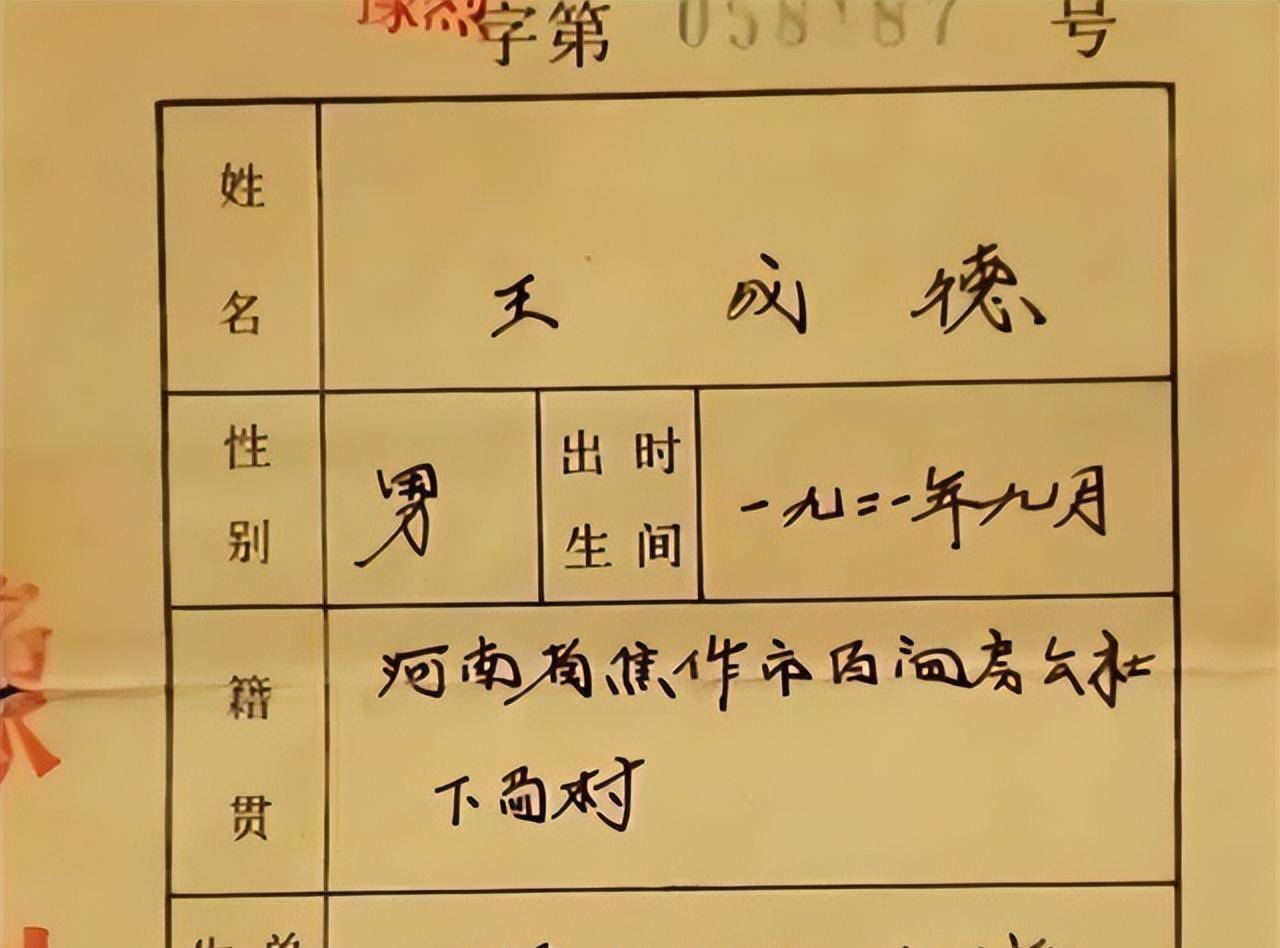 字第 058187 号
姓名 王成德
性别 男 出生时间 一九二一年九月
籍贯 河南省焦作市百洄房公社
下岗村